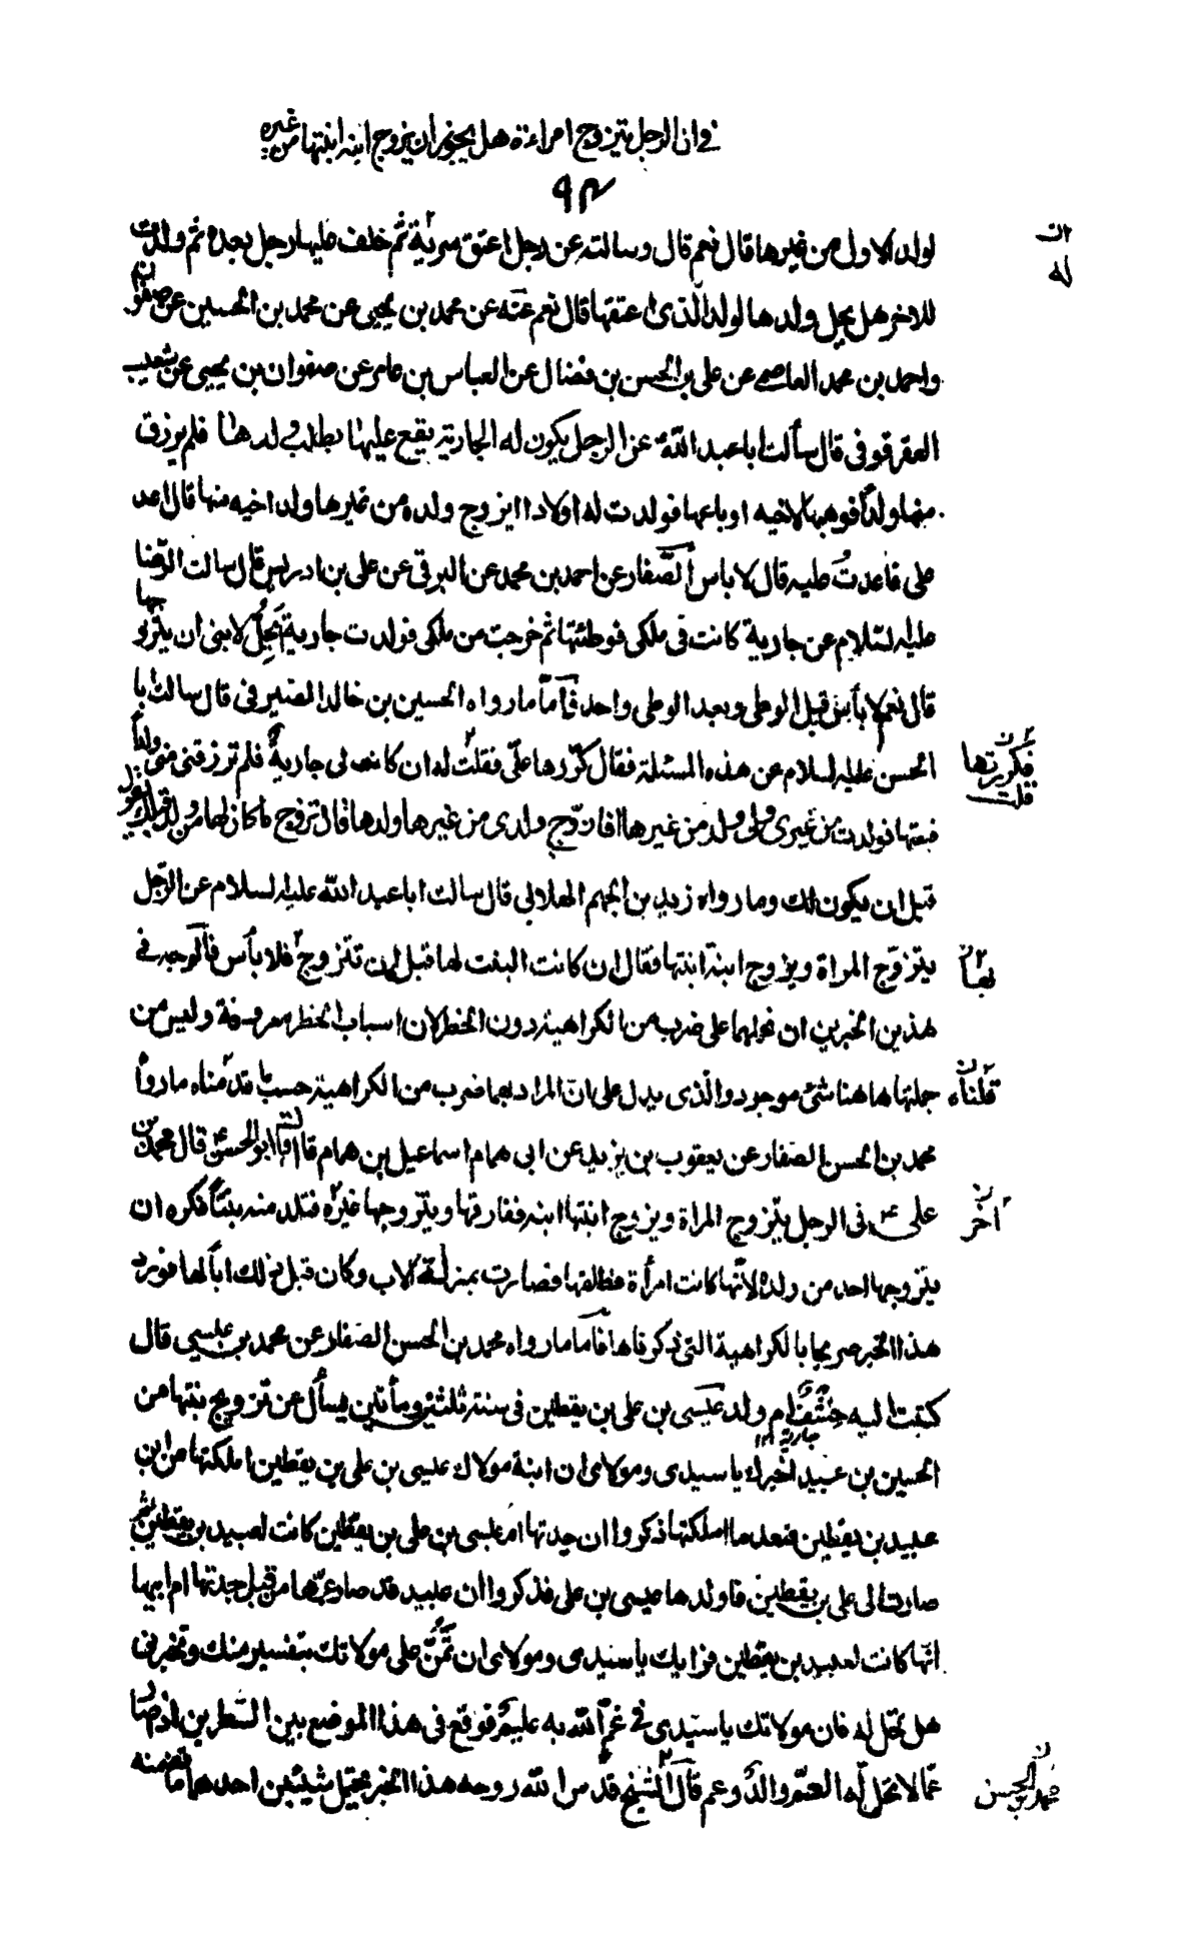 في ان الرجل يتزوج امراءة هل يجوز ان يزوج ابنه ابنتها من غيره
٩٣
لولد الاول من غيرها قال نعم قال وسالته عن رجل اعتق سرية ثم خلف عليها رجل بعده ثم ولدت
للاخر هل يحل ولدها لولد الذى اعتقها قال نعم عنه عن محمد بن يحيى عن محمد بن الحسين عن صفوان
واحمد بن محمد العاصمى عن على بن الحسن بن فضال عن العباس بن عامر عن صفوان بن يحيى عن شعيب
العقرقوفى قال سألت ابا عبد الله ع عن الرجل يكون له الجارية يقع عليها يطلب ولدها فلم يرزق
منها ولدا فوهبها لاخيه او باعها فولدت له اولادا ايزوج ولده من غيرها ولد اخيه منها قال اعد
على فاعدت عليه قال لا باس الصفار عن احمد بن محمد عن البرقى عن على بن ادريس قال سالت الرضا
عليه السلام عن جارية كانت فى ملكى فوطئتها ثم خرجت من ملكى فولدت جارية يحل لابنى ان يتزوجها
قال نعم لا بأس قبل الوطى وبعد الوطى واحد فأما ما رواه الحسين بن خالد الصيرفى قال سالت ابا
الحسن عليه السلام عن هذه المسئلة فقال كررها على فقلت له ان كانت لى جارية فلم ترزقنى منى ولدا
فبعتها فولدت من غيرى ولى ولد من غيرها افازوج ولدى من غيرها ولدها قال تزوج ما كان لها من ولد قبلك يقول
قبل ان يكون لك وما رواه زيد بن الجهم الهلالى قال سالت ابا عبد الله عليه السلام عن الرجل
يتزوج المراة ويزوج ابنه ابنتها فقال ان كانت البنت لها قبل ان تتزوج فلا بأس فالوجه فى
هذين الخبرين ان نحملهما على ضرب من الكراهية دون الحظر لان اسباب الحظر معروفة وليس من
جملتها هاهنا شئ موجود والذى يدل على ان المراد بهما ضرب من الكراهية حسب ما قدمناه ما رواه
محمد بن الحسن الصفار عن يعقوب بن يزيد عن ابى همام اسماعيل بن همام قال قال ابو الحسن ع قال محمد بن
على ع فى الرجل يتزوج المراة ويزوج ابنتها ابنه ففارقها ويتزوجها غيره فتلد منه بنتا فكره ان
يتزوجها احد من ولده لانها كانت امرأة فطلقها فصارت بمنزلة الاب وكان قبل ذلك ابا لها فورد
هذا الخبر صريحا بالكراهية التى ذكرناها فأما ما رواه محمد بن الحسن الصفار عن محمد بن عيسى قال
كتبت اليه خشف ام ولد عيسى بن على بن يقطين فى سنة ثلث ومأتين يسأل عن تزويج بنتها من
جارية
الحسين بن عبيد اخبرك يا سيدى ومولاى ان ابنة مولاك عيسى بن على بن يقطين املكتها من ابن
عبيد بن يقطين فبعد ما املكتها ذكروا ان جدتها ام عيسى بن على بن يقطين كانت لعبيد بن يقطين ثم
صارت الى على بن يقطين فاولدها عيسى بن على فذكروا ان عبيد قد صار عمها من قبل جدتها ام ابيها
انها كانت لعبيد بن يقطين فرايك يا سيدى ومولاى ان تمن على مولاتك بتفسير منك وتخبرنى
هل تحل له فان مولاتك يا سيدى فى غم الله به عليم فوقع فى هذا الموضع بين السطرين اذ صار
عما لا تحل له العم والد وعم قال الشيخ قدس الله روحه هذا الخبر يحتمل شيئين احدهما ما تضمنه
ات
له
فكررتها
قلت
لها
قلناه
آخر
محمد بن الحسن